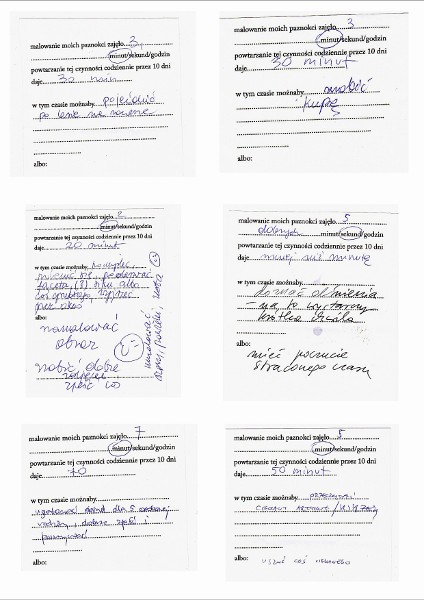 malowanie moich paznokci zajęło 3
minut/sekund/godzin
powtarzanie tej czynności codziennie przez 10 dni
daje 30 min
w tym czasie możnaby pojeździć
po lesie na rowerze
albo:
malowanie moich paznokci zajęło 3
minut/sekund/godzin
powtarzanie tej czynności codziennie przez 10 dni
daje 30 minut
w tym czasie możnaby zrobić
kupę
albo:
malowanie moich paznokci zajęło 2
minut/sekund/godzin
powtarzanie tej czynności codziennie przez 10 dni
daje 20 minut
w tym czasie możnaby
albo:
namalować
obraz
zrobić dobre
zdjęcie
zjeść coś
malowanie moich paznokci zajęło 5
dobrych minut/sekund/godzin
powtarzanie tej czynności codziennie przez 10 dni
daje mniej niż minutę
w tym czasie możnaby
doznać olśnienia
na to wystarczy
krótka chwila
albo:
mieć poczucie
straconego czasu
malowanie moich paznokci zajęło 7
minut/sekund/godzin
powtarzanie tej czynności codziennie przez 10 dni
daje 70
w tym czasie możnaby
ugotować obiad dla 5 osobowej
rodziny, dobrze zjeść i
pozmywać
albo:
malowanie moich paznokci zajęło 5
minut/sekund/godzin
powtarzanie tej czynności codziennie przez 10 dni
daje 50 minut
w tym czasie możnaby przeczytać
ciekawy artykuł/książkę
albo:
uszyć coś